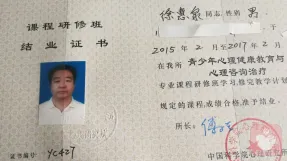 课程研修班
结业证书
证书编号 YC427
同志 性别 男
2015年2月至2017年2月
在我所 青少年心理健康教育与
心理咨询治疗
专业课程研修班学习,修完教学计划
规定的课程,成绩合格,准予结业。
所长:
中国科学院心理研究所